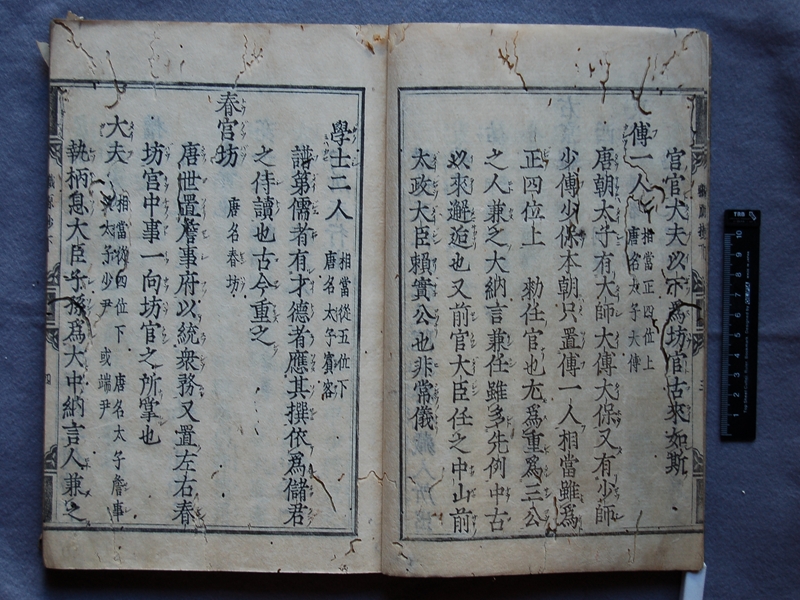 官官大夫以下爲坊官古來如斯
傅一人 相當正四位上
唐名太子大傅
唐朝太子有大師大傅大保又有少師
少傅少保本朝只置傅一人相當雖爲
正四位上 勅任官也尤爲重爲三公
之人兼之大納言兼任雖多先例中古
以來邂逅也又前官大臣任之中山前
太政大臣賴實公也非常儀
學士二人 相當從五位下
唐名太子賓客
譜第儒者有才德者應其撰依爲儲君
之侍讀也古今重之
春宮坊 唐名春坊
唐世置詹事府以統衆務又置左右春
坊官中事一向坊官之所掌也
大夫 相當從四位下 唐名太子詹事
太子少尹 或端尹
執柄息大臣子孫爲大中納言人兼之